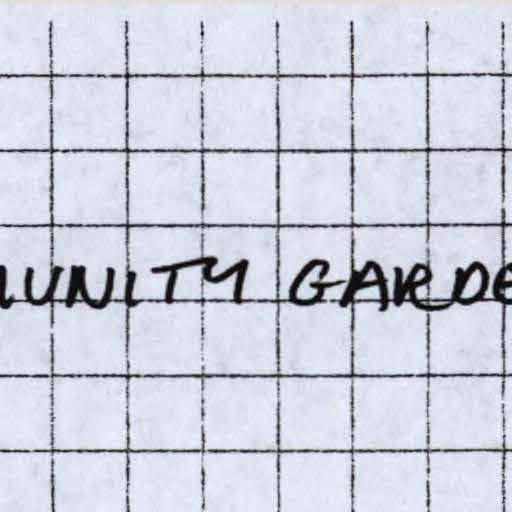 MUNITY GARDE